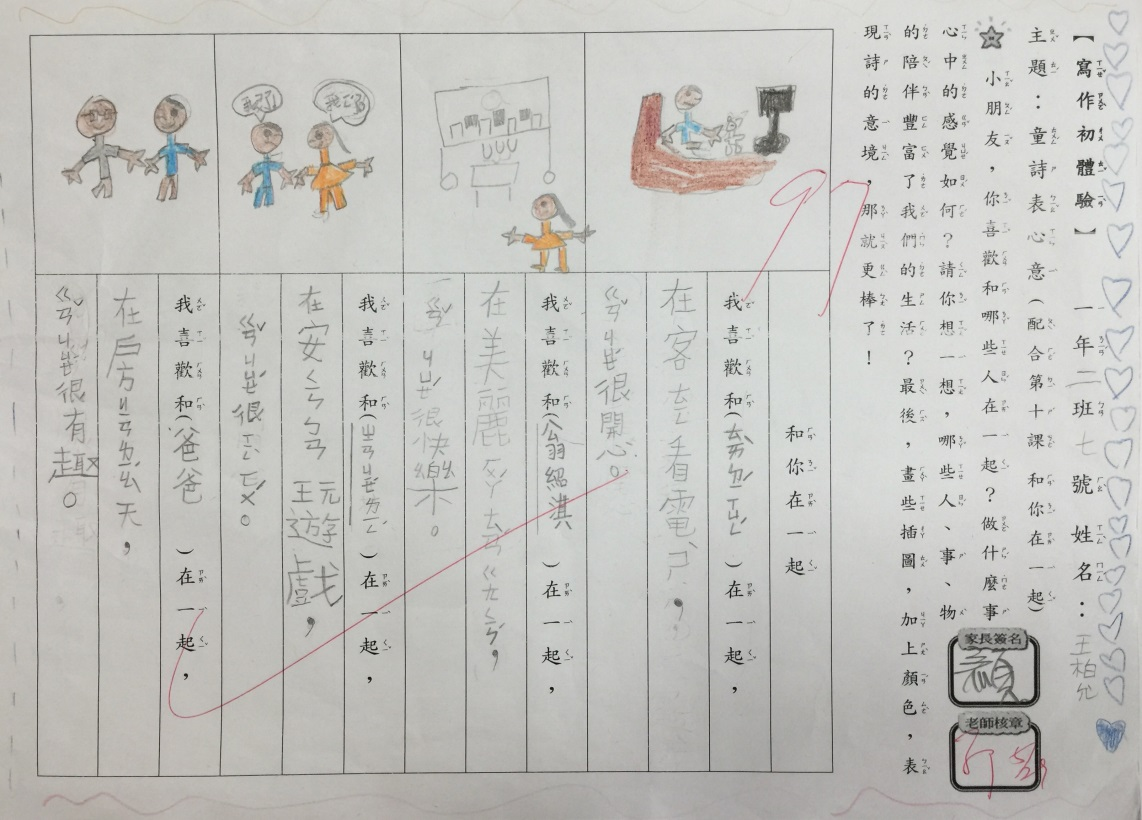 【寫作初體驗】 一年二班七號姓名：王柏允
主題：童詩表心意（配合第十課 和你在一起）
小朋友，你喜歡和哪些人在一起？做什麼事
心中的感覺如何？請你想一想，哪些人、事、物
的陪伴豐富了我們的生活？最後，畫些插圖，加上顏色，表
現詩的意境，那就更棒了！
家長簽名
顏
老師核章
97
和你在一起
我喜歡和（ ）在一起，
在客ㄊㄧㄥ看電ㄕˋ，
ㄍㄢˇㄐㄩㄝˊ很開心。
我喜歡和（翁紹淇）在一起，
在美麗ㄉㄚˋㄊㄤˊㄍㄨㄤˋ，
ㄍㄢˇㄐㄩㄝˊ很快樂。
我喜歡和（ ）在一起，
在安ㄑㄧㄣ ㄅㄢ玩遊戲，
ㄍㄢˇㄐㄩㄝˊ很
我喜歡和（爸爸）在一起，
在房ㄐㄧㄢ ㄌㄧㄠˊ天，
ㄍㄢˇㄐㄩㄝˊ很有趣。